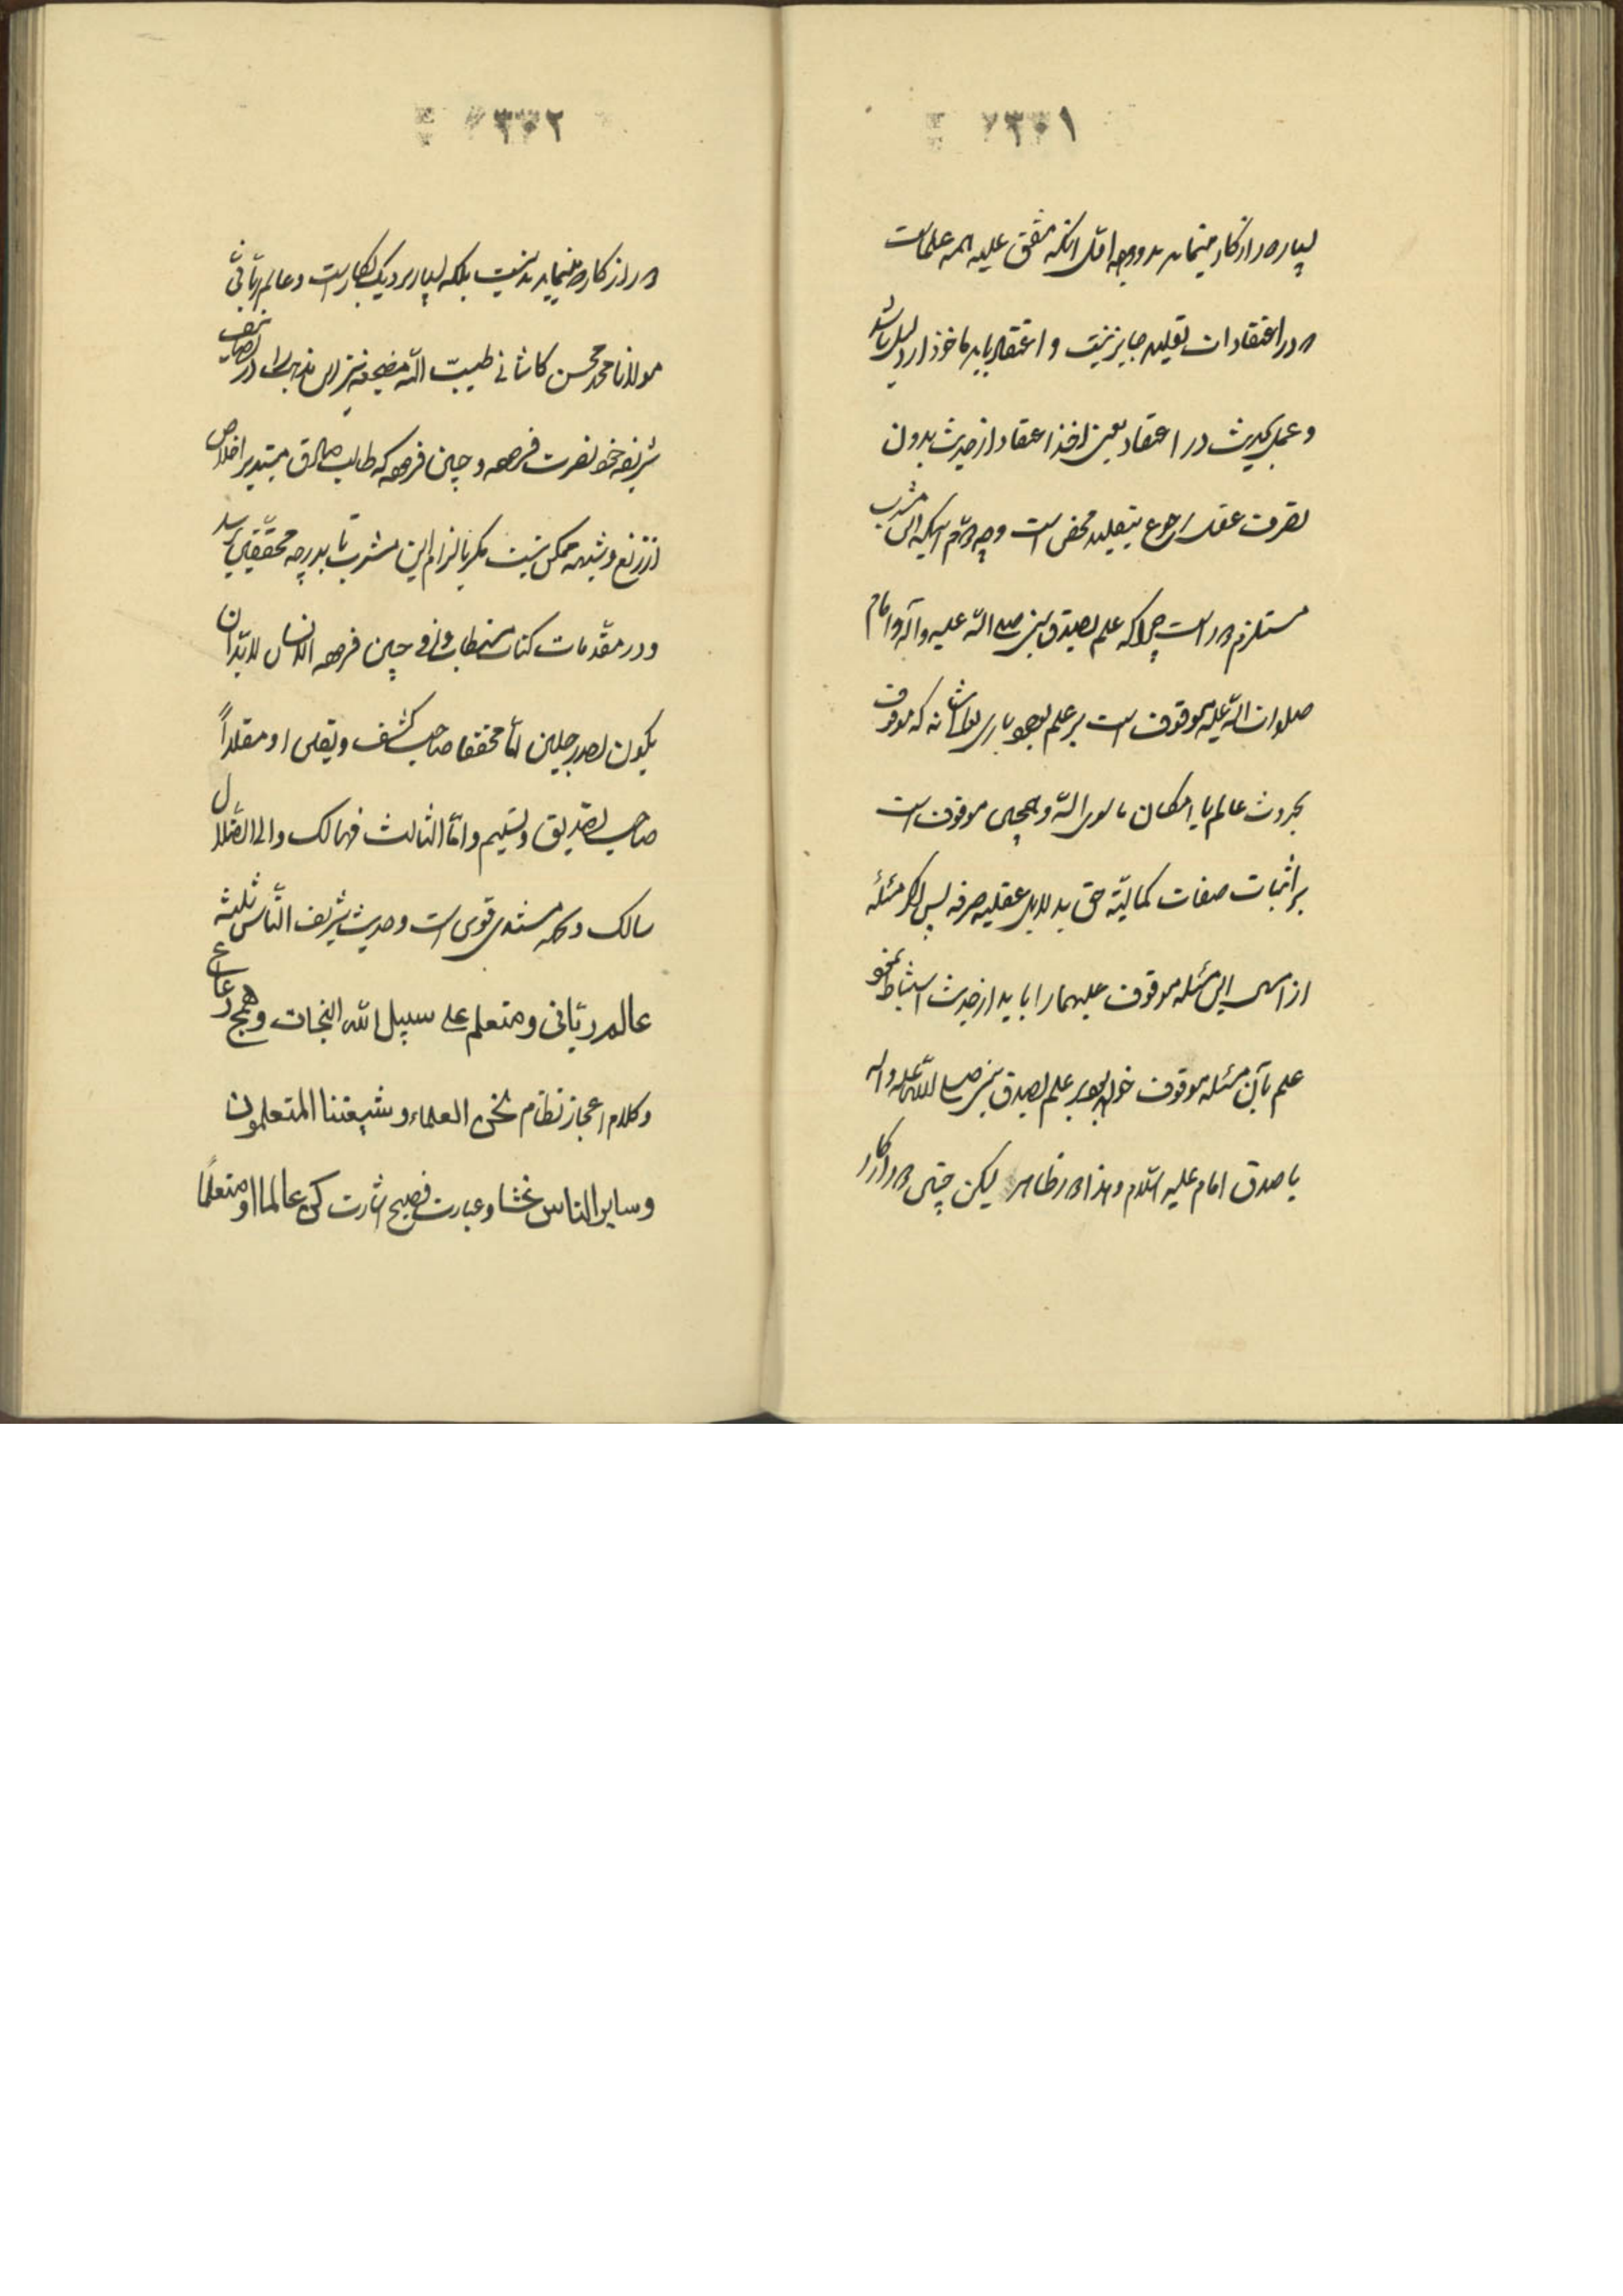 ٣٠١
بسیار دور از کار مینماید بدو وجه اول آنکه متفق علیه همه علماست
که در اعتقادات تقلید جایز نیست و اعتقاد باید ماخوذ از دلیل باشد
و عمل بحدیث در اعتقاد یعنی اخذ اعتقاد از حدیث بدون
تصرف عقل رجوع بتقلید محض است وجه دوم اینکه این مشرب
مستلزم دور است چرا که علم بصدق نبی صلی الله علیه و آله و امام
صلوات الله علیه موقوف است بر علم بوجود باری تعالی شانه که موقوف
بحدوث عالم یا امکان ماسوی الله و همچنین موقوف است
بر اثبات صفات کمالیّه حق بدلایل عقلیه صرفه پس اگر مسئله
از این مسئله موقوف علیهما را باید از حدیث استنباط نمود
علم بآن مسئله موقوف خواهد بود بر علم بصدق نبی صلی الله علیه و اله
یا صدق امام علیه السلام و هذا دور ظاهر لیکن چنین دور از کار
٣٠٢
دور از کار مینماید نیست بلکه بسیار نزدیک بکار است و عالم ربّانی
مولانا محمد محسن کاشانی طیب الله مضجعه نیز این مذهب را در تصانیف
شریفه خود نصرت فرموده و چنین فرموده که طالب صادق مبتدی را خلاص
از زیغ و شبهه ممکن نیست مگر بالتزام این مشرب تا بدرجه محققین رسد
و در مقدمات کتاب مستطاب وافی چنین فرموده الانسان لابدّ ان
یکون احد رجلین امّا محققا صاحب کشف و یقین او مقلداً
صاحب تصدیق و تسلیم و امّا الثالث فهالک و الی الضلال
سالک و که مستندی قوی است و حدیث شریف النّاس ثلثة
عالم ربّانی و متعلم علی سبیل الله النجات و همج رعاع
و کلام اعجاز نظام نحن العلماء و شیعتنا المتعلمون
و سایر الناس غثا و عبارت فصیح اشارت کن عالما او متعلمًا